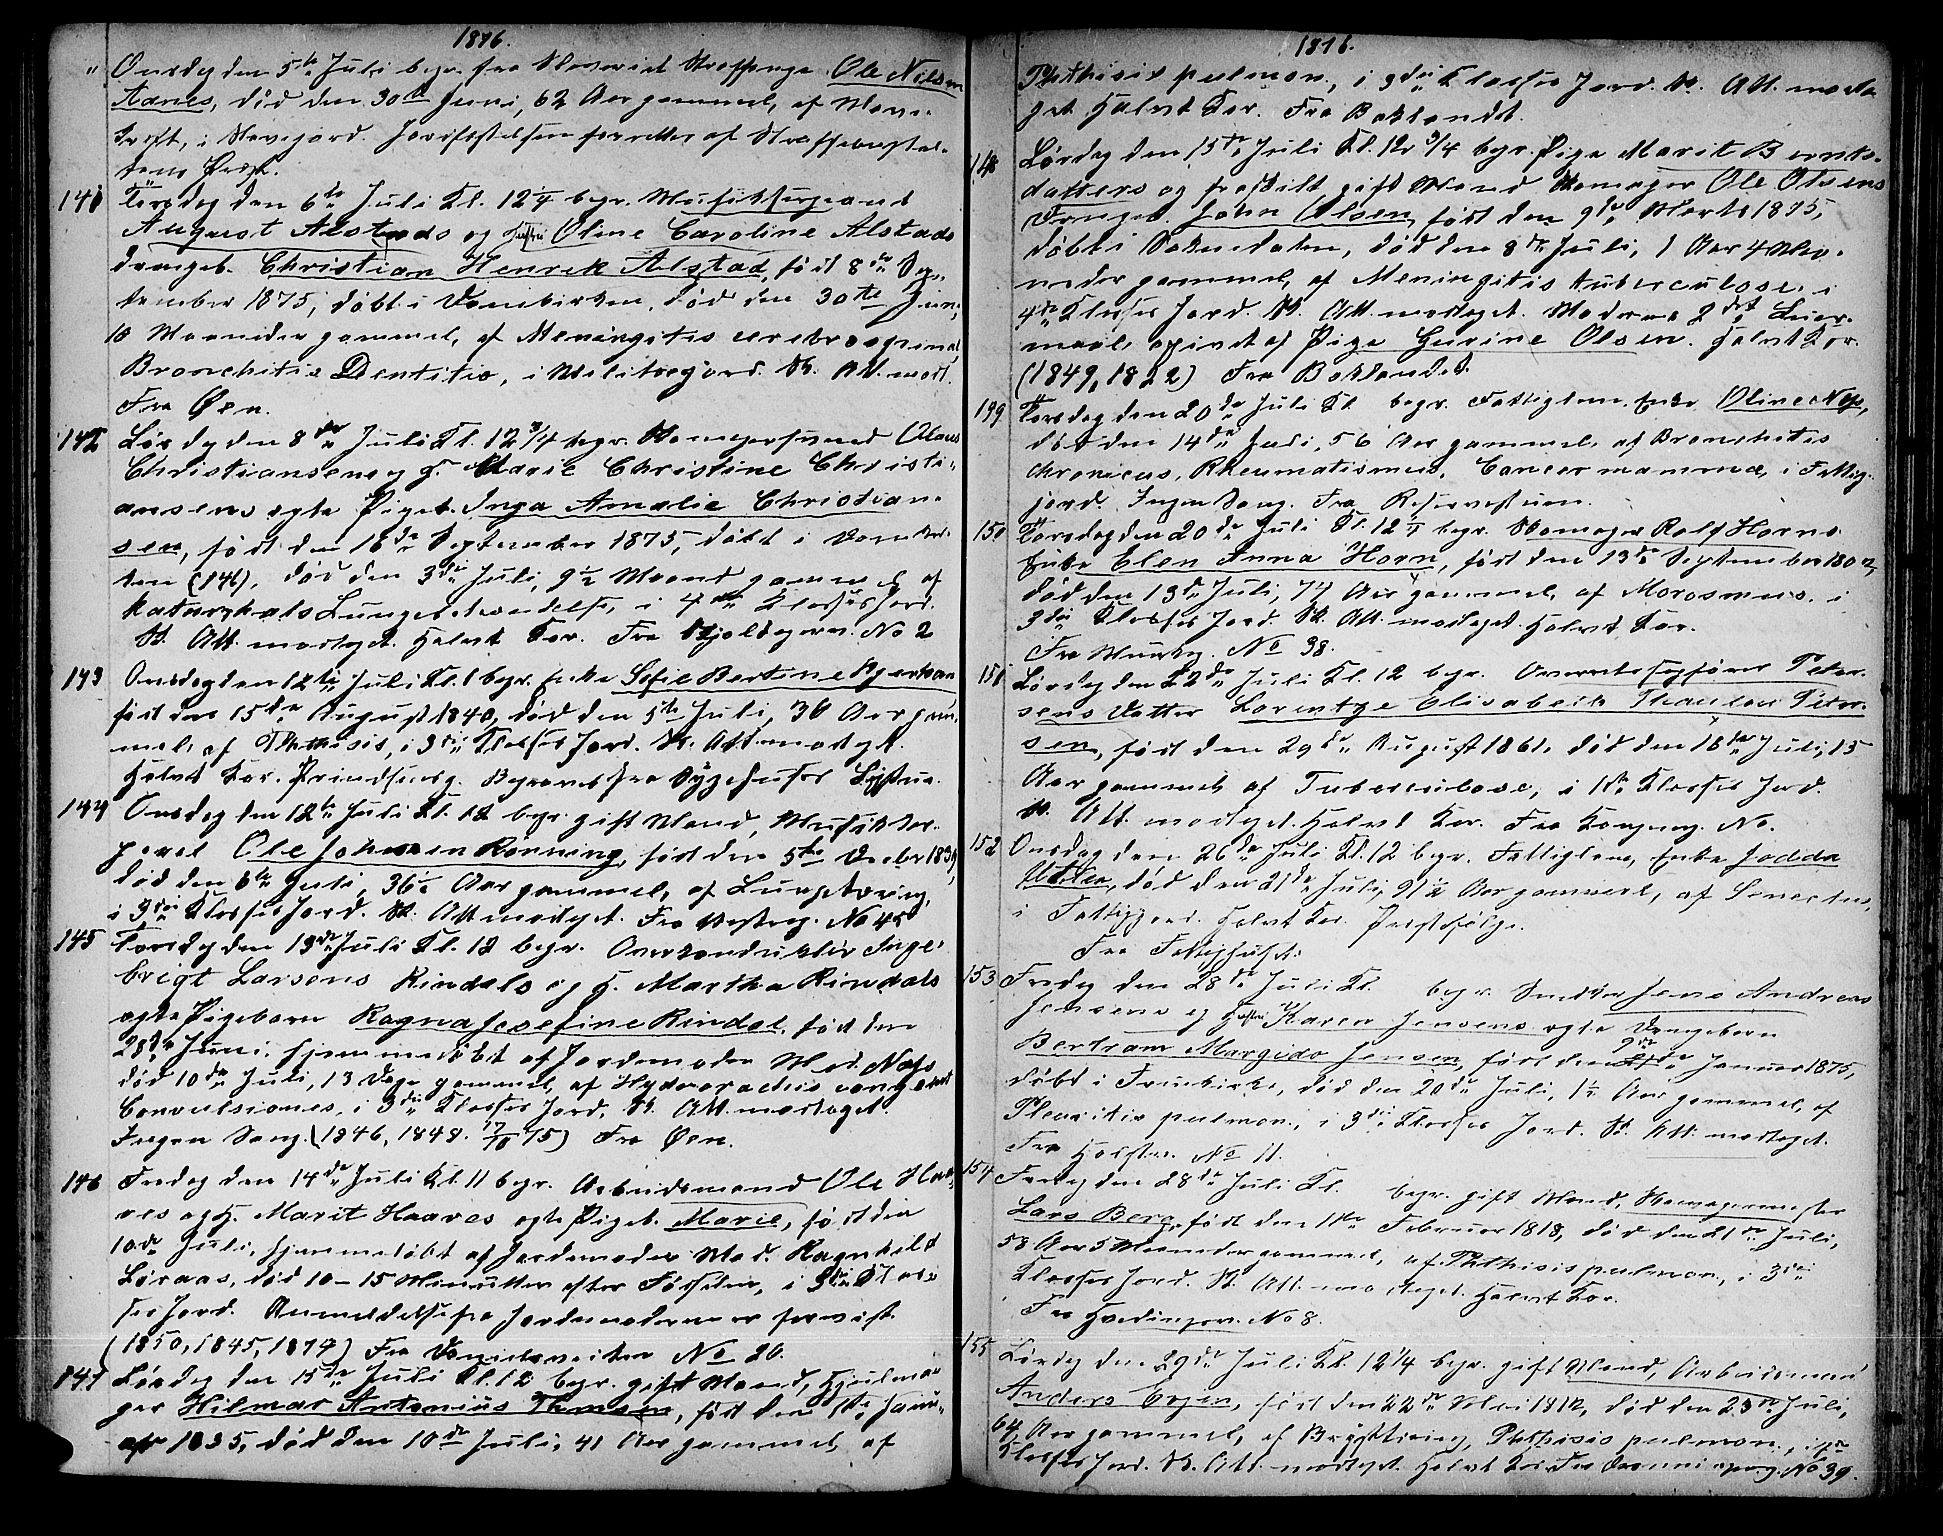 1876.
" Onsdag den 5te Juli begr. fra Slaveriet Straffange Ole Nilsen
Aanes, død den 30te Juni, 62 Aar gammel, af
i Slavejord. Jordfæstelsen forrettes af Straffeanstal-
tens Præst.
141 Torsdag den 6te Juli Kl. 12 1/4 begr. Musiksergeant
August Alstads og Hustru Oline Caroline Alstads
drengeb. Christian Henrik Alstad, født 8de Sep-
tember 1875, døbt i Domkirken, død den 30te Juni,
10 Maaneder gammel, af Meningitis cerebrospinal,
Bronchitis Dentitio, i Militærjord. Sk. Att. modt.
Fra Øen.
142 Lørdag den 8de Juli Kl. 12 3/4 begr. Skomagersvend Olaus
Christiansens og H. Marie Christine Christi-
ansens ægte Pigeb. Inga Amalie Christian-
sen, født den 16de September 1875, døbt i Domkir-
ken (146), død den 3die Juli, 9 1/2 Maaned gammel, af
katarrhalsk Lungebetændelse, i 4de Klasses Jord.
Sk. Att. modtaget. Halvt Kor. Fra Kjøldgaden No 2
143 Onsdag den 12te Juli Kl. 1 begr. Enke Sofie Bertine Bjerkan
født den 15de August 1840, død den 5te Juli, 36 Aar gam-
mel, af Phthisis, i 3die Klasses Jord. Sk. Att. modtaget.
Halvt Kor. Prindsensg. Begravet fra Sygehusets Ligstue.
144 Onsdag den 12te Juli Kl. 12 begr. gift Mand, Musikkor-
poral Ole Johnsen Rønning, født den 5te Decbr 1839,
død den 6te Juli, 36 1/2 Aar gammel, af Lungetæring,
i 3die Klasses Jord. Sk. Att. modtaget. Fra Vestreg. No 45
145 Torsdag den 13de Juli Kl. 12 begr. Overkonduktør Inge-
brigt Larsens Rindals og H. Martha Rindals
ægte Pigebarn Ragna Josefine Rindal, født den
28de Juni, hjemmedøbt af Jordemoder Mad. Næss
død 10de Juli, 13 Dage gammel, af Hydrorachis congenit
Convulsiones, i 3die Klasses Jord. Sk. Att. modtaget.
Ingen Sang. (1846, 1848. 17/10 75) Fra Øen.
146 Fredag den 14de Juli Kl. 11 begr. Arbeidsmand Ole Haa-
res og H. Marit Haares ægte Pigeb. Marie, født den
10de Juli, hjemmedøbt af Jordemoder Mad. Ragnhild
Løraas, død 10-15 Minutter efter Fødselen, i 3die Klas-
ses Jord. Anmeldelse fra Jordemoderen er forevist.
(1850, 1845, 1874) Fra Danielsveiten No 20.
147 Lørdag den 15de Juli Kl. 12 begr. gift Mand, Hjulma-
ger Hilmar Antonius Thomsen, født den 1ste Janu-
ar 1835, død den 10de Juli, 41 Aar gammel, af
1876.
Phthisis pulmon., i 3die Klasses Jord. Sk. Att. modta-
get. Halvt Kor. Fra Baklandet.
148 Lørdag den 15de Juli Kl. 12 3/4 begr. Pige Marit Bernts-
datters og fraskilt gift Mand Skomager Ole Olsens
Drengeb. John Olsen, født den 9de Marts 1875,
døbt i Soknedalen, død den 8de Juli, 1 Aar 4 Maa-
neder gammel, af Meningitis tuberculose, i
4de Klasses Jord. Sk. Att. modtaget. Moderens 2det Leier-
maal, opgivet af Pige Gurine Olsen. Halvt Kor.
(1849, 1822) Fra Baklandet.
149 Torsdag den 20de Juli Kl. begr. Fattiglem, Enke Oline Næss,
død den 14de Juli, 56 Aar gammel, af Bronchitis
chronicus, Rheumatismus, Cancer mammæ, i Fattig-
jord. Ingen Sang. Fra Reservestuen.
150 Torsdag den 20de Juli Kl. 12 1/2 begr. Skomager Rolf Horns
Enke Elen Anna Horn, født den 13de September 1802,
død den 13de Juli, 74 Aar gammel, af Marasmus, i
3die Klasses Jord. Sk. Att. modtaget. Halvt Kor.
Fra Munkg. No 38.
151 Lørdag den 22de Juli Kl. 12 begr. Overretssagfører Peter-
sens Datter Lorentze Elisabeth Thaulow Peter-
sen, født den 29de August 1861, død den 16de Juli, 15
Aar gammel, af Tuberculose, i 1ste Klasses Jord.
Sk. Att. modtaget. Halvt Kor. Fra Kongensg. No.
152 Onsdag den 26de Juli Kl. 12 begr. Fattiglem, Enke Jodda
død den 21de Juli, 91 1/2 Aar gammel, af Senectus,
i Fattigjord. Halvt Kor. Præstefølge.
Fra Fattighuset.
153 Fredag den 28de Juli Kl. begr. Snedker Jens Andreas
Jensens og Hustru Karen Jensens ægte Drengebarn
Bertram Margido Jensen, født den 9de Januar 1875,
døbt i Fruekirke, død den 20de Juli, 1 1/2 Aar gammel, af
Pleuritis pulmon., i 3die Klasses Jord. Sk. Att. modtaget.
Fra No 11.
154 Fredag den 28de Juli Kl. begr. gift Mand, Skomagermester
Lars Berg, født den 1ste Februar 1818, død den 21de Juli,
58 Aar 5 Maaneder gammel, af Phthisis pulmon., i 3die
Klasses Jord. Sk. Att. modtaget. Halvt Kor.
Fra No 8.
155 Lørdag den 29de Juli Kl. 12 1/4 begr. gift Mand, Arbeidsmand
Anders Engen, født den 22de Mai 1812, død den 23de Juli,
64 Aar gammel, af Brysttæring, Phthisis pulmon.,
Klasses Jord. Sk. Att. modtaget. Halvt Kor. Fra Dronningensg. No 39.